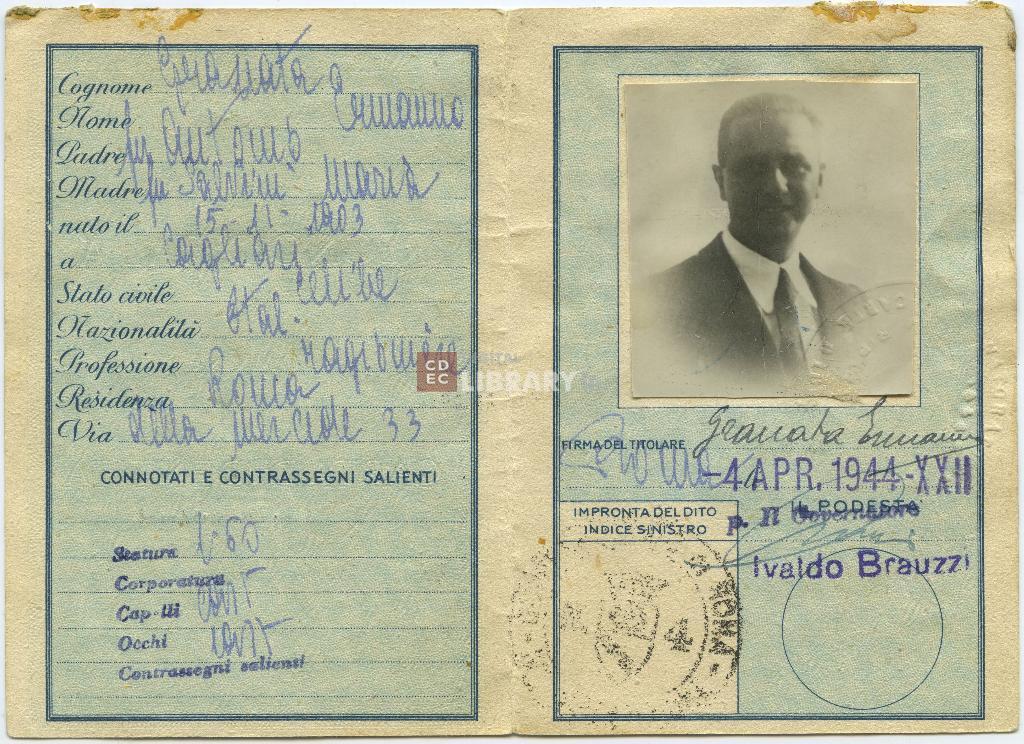 Cognome Granata
Nome Ermanno
Padre fu Antonio
Madre fu Salvini Maria
nato il 15-11-1903
a Cagliari
Stato civile celibe
Nazionalità Ital.
Professione ragioniere
Residenza Roma
Via della Mercede 33
CONNOTATI E CONTRASSEGNI SALIENTI
Statura 1.60
Corporatura
Capelli cast
Occhi cast
Contrassegni salienti
CDEC DIGITAL LIBRARY
FIRMA DEL TITOLARE Granata Ermanno
Roma -4 APR. 1944-XXII
IMPRONTA DEL DITO
INDICE SINISTRO
IL PODESTA'
p. Il Governatore
Ivaldo Brauzzi
ROMA